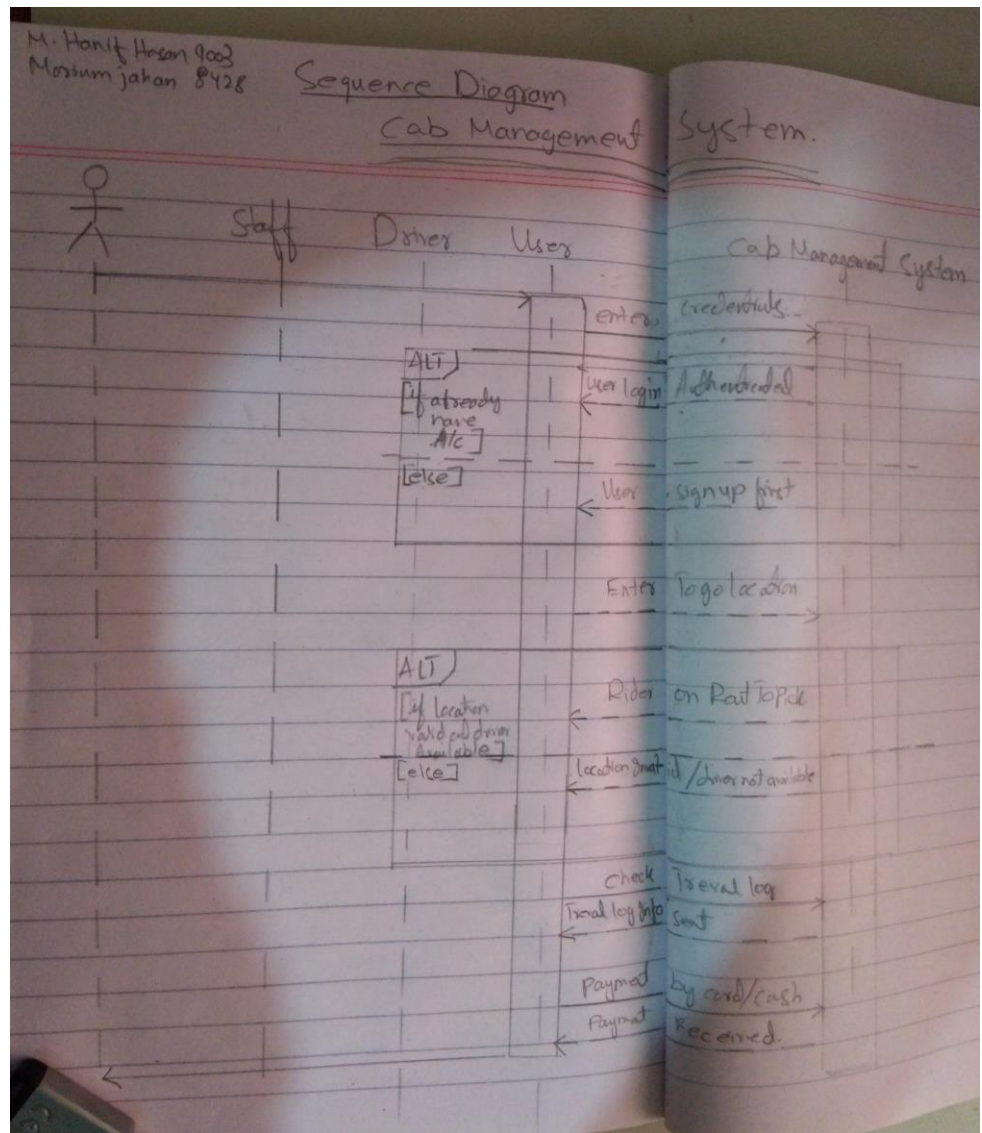 M. Hanif Hasan 9003
Morium jahan 8428
Sequence Diagram
Cab Management System.
Staff Driver User Cab Management System
enter credentials..
ALT
User login Authenticated
[if already
have
A/c]
[else]
User signup first
Enter To go location
ALT
Rider on Rout To Pick
[if location
valid and driver
Available]
[else]
location Invalid / driver not available
Check Treval log
Treval log Info sent
Payment by card/cash
Payment Received.